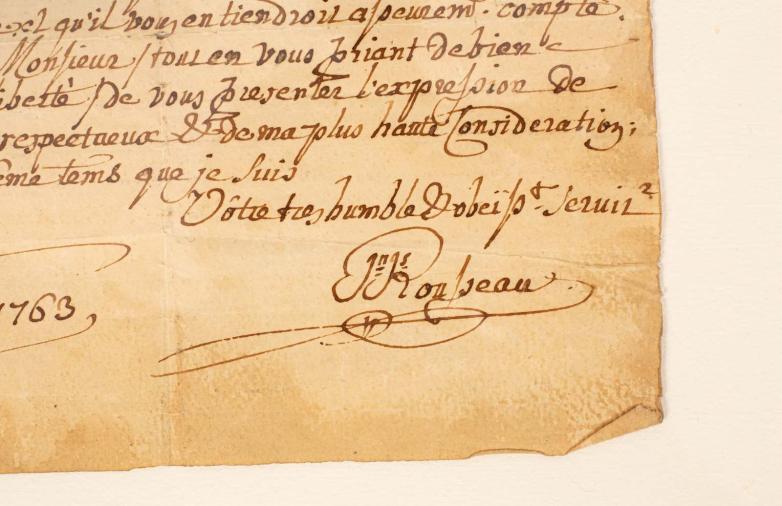 qu'il vous en tiendroit asseurem.t compte.
Monsieur / tout en vous priant de bien
liberté / de vous presenter l'expression de
respectueux & de ma plus haute Consideration;
même tems que je suis
Vôtre tres humble & obeïss.t servit.r
J.n J.s Rousseau
1763,